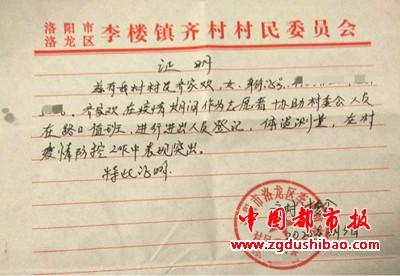 洛阳市
洛龙区 李楼镇齐村村民委员会
证明
兹有我村村民齐家欢，女，身份证号
齐家欢在疫情期间作为志愿者协助村委会人员
在路口值班，进行进出人员登记，体温测量，在村
疫情防控工作中表现突出。
特此证明
市洛龙区李
村民
中国都市报
www.zgdushibao.com